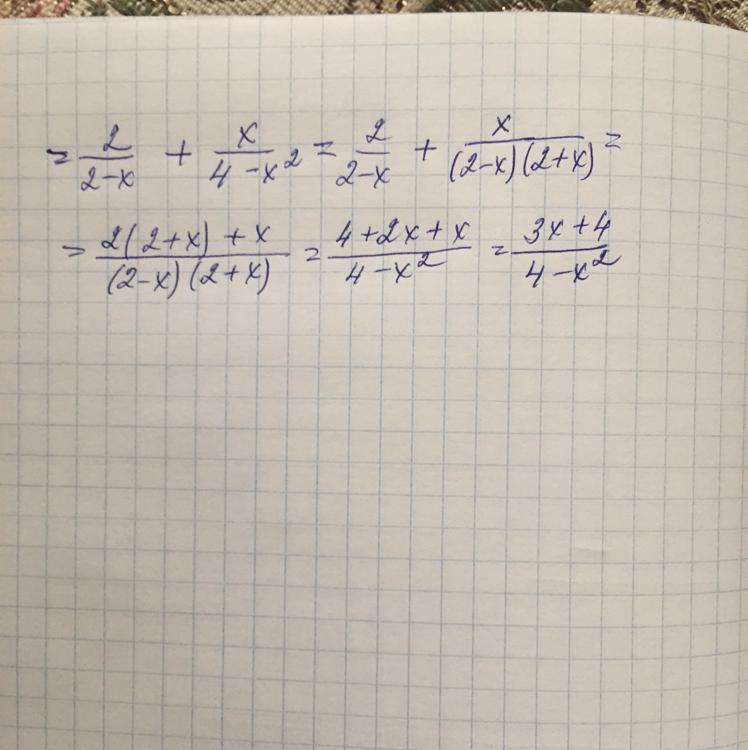 = 2/(2-x) + x/(4-x²) = 2/(2-x) + x/((2-x)(2+x)) =
= (2(2+x)+x)/((2-x)(2+x)) = (4+2x+x)/(4-x²) = (3x+4)/(4-x²)